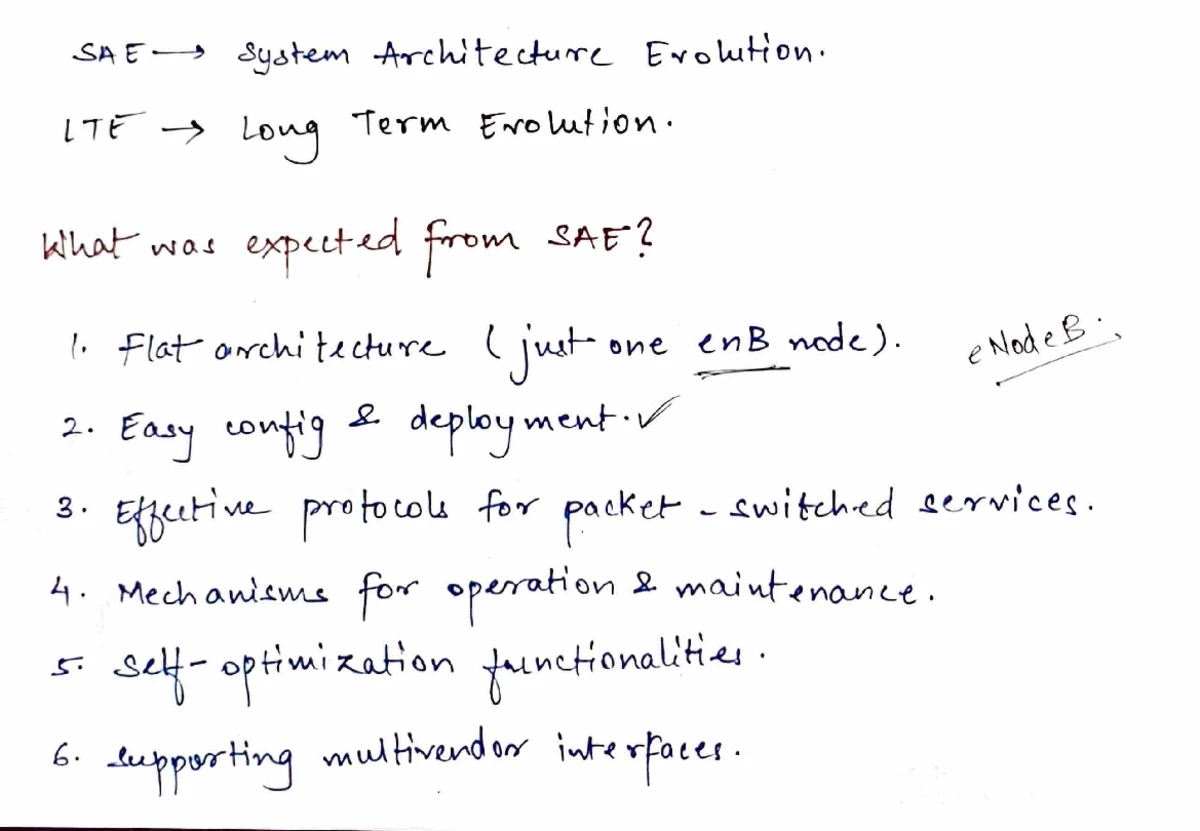 SAE → System Architecture Evolution.
LTE → Long Term Evolution.
What was expected from SAE?
1. Flat architecture (just one enB node). eNodeB.
2. Easy config & deployment. ✓
3. Effective protocols for packet-switched services.
4. Mechanisms for operation & maintenance.
5. Self-optimization functionalities.
6. Supporting multivendor interfaces.